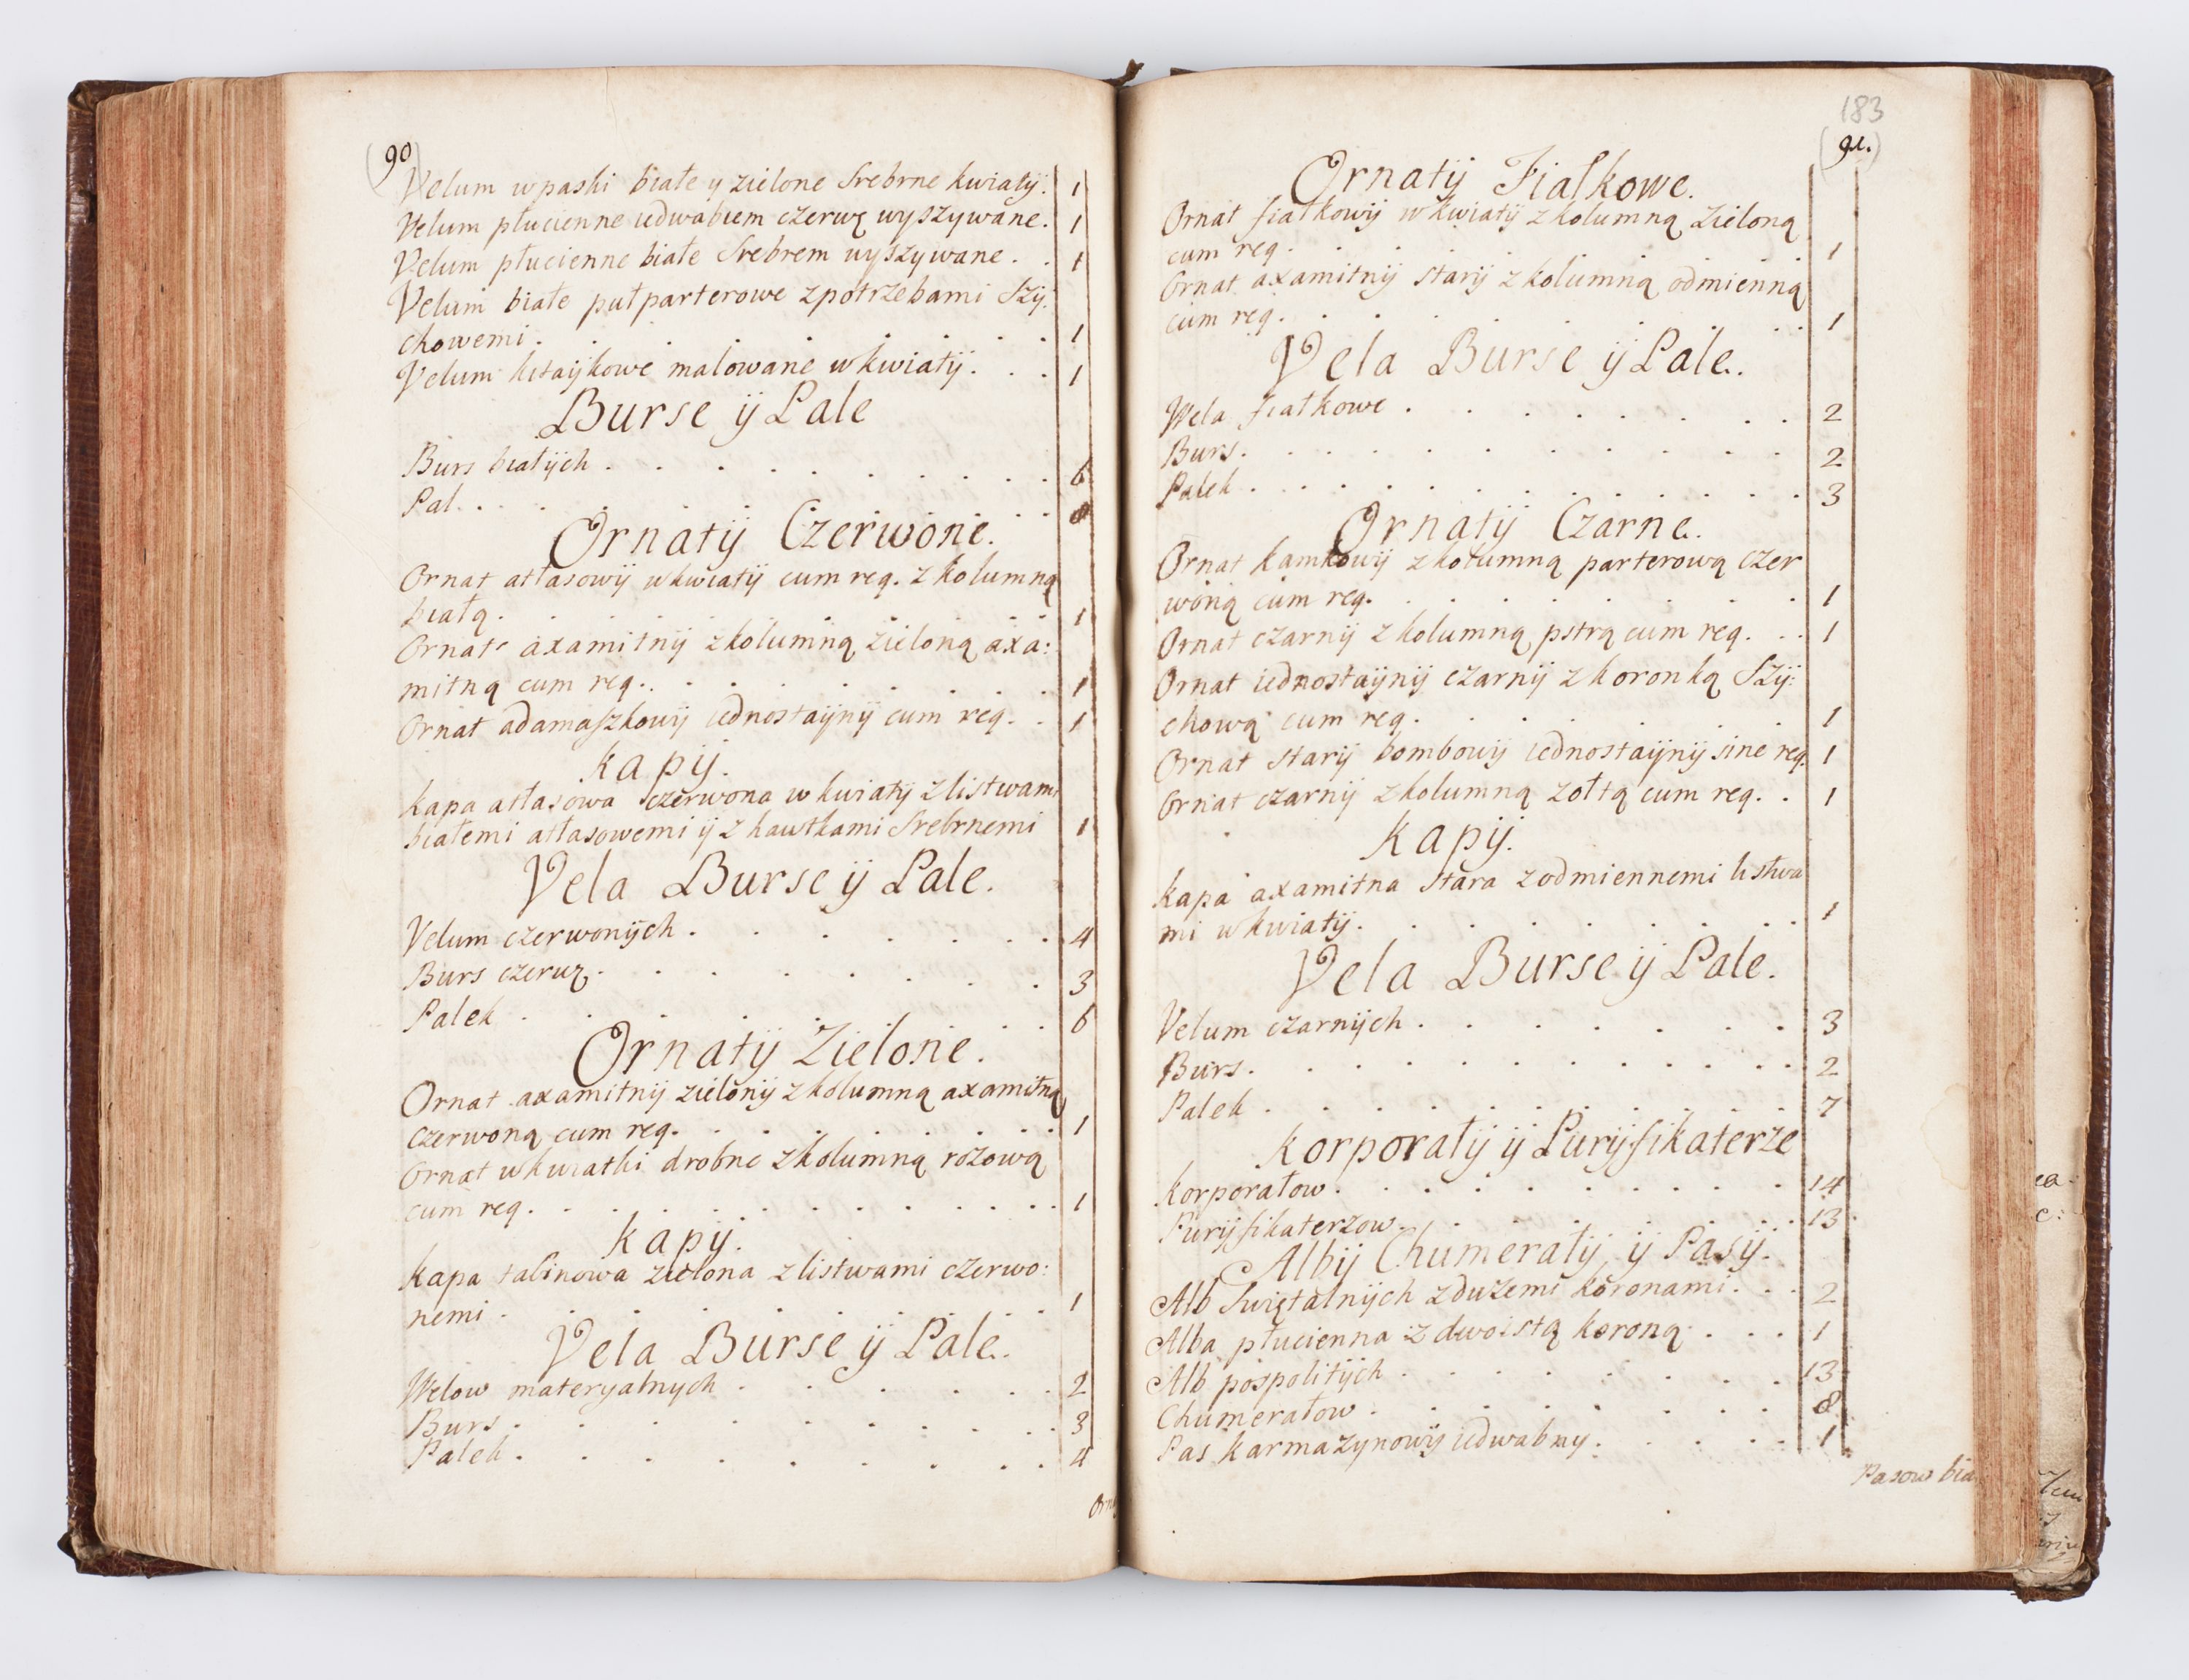 (90)
Velum w paski białe y zielone Srebrne kwiatÿ. 1
Velum płucienne iedwabiem czerwę wyszywane. 1
Velum płucienne białe Srebrem wyszywane. . 1
Velum białe pułparterowe z potrzebami Szÿ:
chowemi. . . . . . . . . 1
Velum kitaÿkowe malowane w kwiatÿ. . . 1
Burse ÿ Pale
Burs białÿch . . . . . . . . . 6
Pal. . . . . . . . 8
Ornatÿ Czerwone.
Ornat atłasowÿ w kwiatÿ cum req. z kolumną
białą. . . . . . . . . . 1
Ornat axamitnÿ z kolumną zieloną axa:
mitną cum req. . . . . . . . . 1
Ornat adamaszkowÿ iednostaÿnÿ cum req. . 1
Kapÿ.
Kapa atłasowa czerwona w kwiatÿ z listwami
białemi atłasowemi ÿ z hawtkami Srebrnemi 1
Vela Burse ÿ Pale.
Velum czerwonÿch . . . . . . . 4
Burs czerwę. . . . . . . . 3
Palek . . . . . . . . 6
Ornatÿ Zielone.
Ornat axamitnÿ zielonÿ z kolumną axamitną
czerwoną cum req. . . . . . . . 1
Ornat w kwiatki drobne z kolumną rożową
cum req. . . . . . . . . . . 1
Kapÿ.
Kapa tabinowa zielona z listwami czerwo:
nemi . . . . . . . . . 1
Vela Burse ÿ Pale.
Welow materyalnych . . . . . . 2
Burs . . . . . . . . . 3
Palek . . . . . . . . 4
Orna
183
(91.)
Ornatÿ Fiałkowe.
Ornat fiałkowÿ w kwiatÿ z kolumną zieloną
cum req. . . . . . . . . 1
Ornat axamitnÿ starÿ z kolumną odmienną
cum req. . . . . . . . . . 1
Vela Burse ÿ Pale.
Wela fiałkowe . . . . . . . . 2
Burs. . . . . . . . . . . 2
Palek . . . . . . . . . . . . 3
Ornatÿ Czarne.
Ornat kamkowÿ z kołumną parterową czer
woną cum req. . . . . . . . . 1
Ornat czarnÿ z kolumną pstrą cum req. . . 1
Ornat iednostaÿnÿ czarnÿ z koronką Szÿ:
chową cum req. . . . . . . . 1
Ornat starÿ bombowÿ iednostaÿnÿ sine req. 1
Ornat czarnÿ z kolumną żołtą cum req. . 1
Kapÿ.
Kapa axamitna stara z odmiennemi listwa
mi w kwiatÿ. . . . . . . . . 1
Vela Burse ÿ Pale.
Velum czarnÿch . . . . . . . 3
Burs. . . . . . . . . . . 2
Palek . . . . . . . . . . 7
Korporałÿ ÿ Purÿfikaterze
Korporałow. . . . . . . . . . 14
Purÿfikaterzow. . . . . . . . 13
Albÿ Chumerałÿ, ÿ Pasÿ.
Alb Swiętalnÿch z dużemi koronami. . . 2
Alba płucienna z dwoistą koroną . . . 1
Alb pospolitÿch . . . . . . . 13
Chumerałow . . . . . . . . 8
Pas karmazynowÿ iedwabny. . . . . 1
Pasow bia